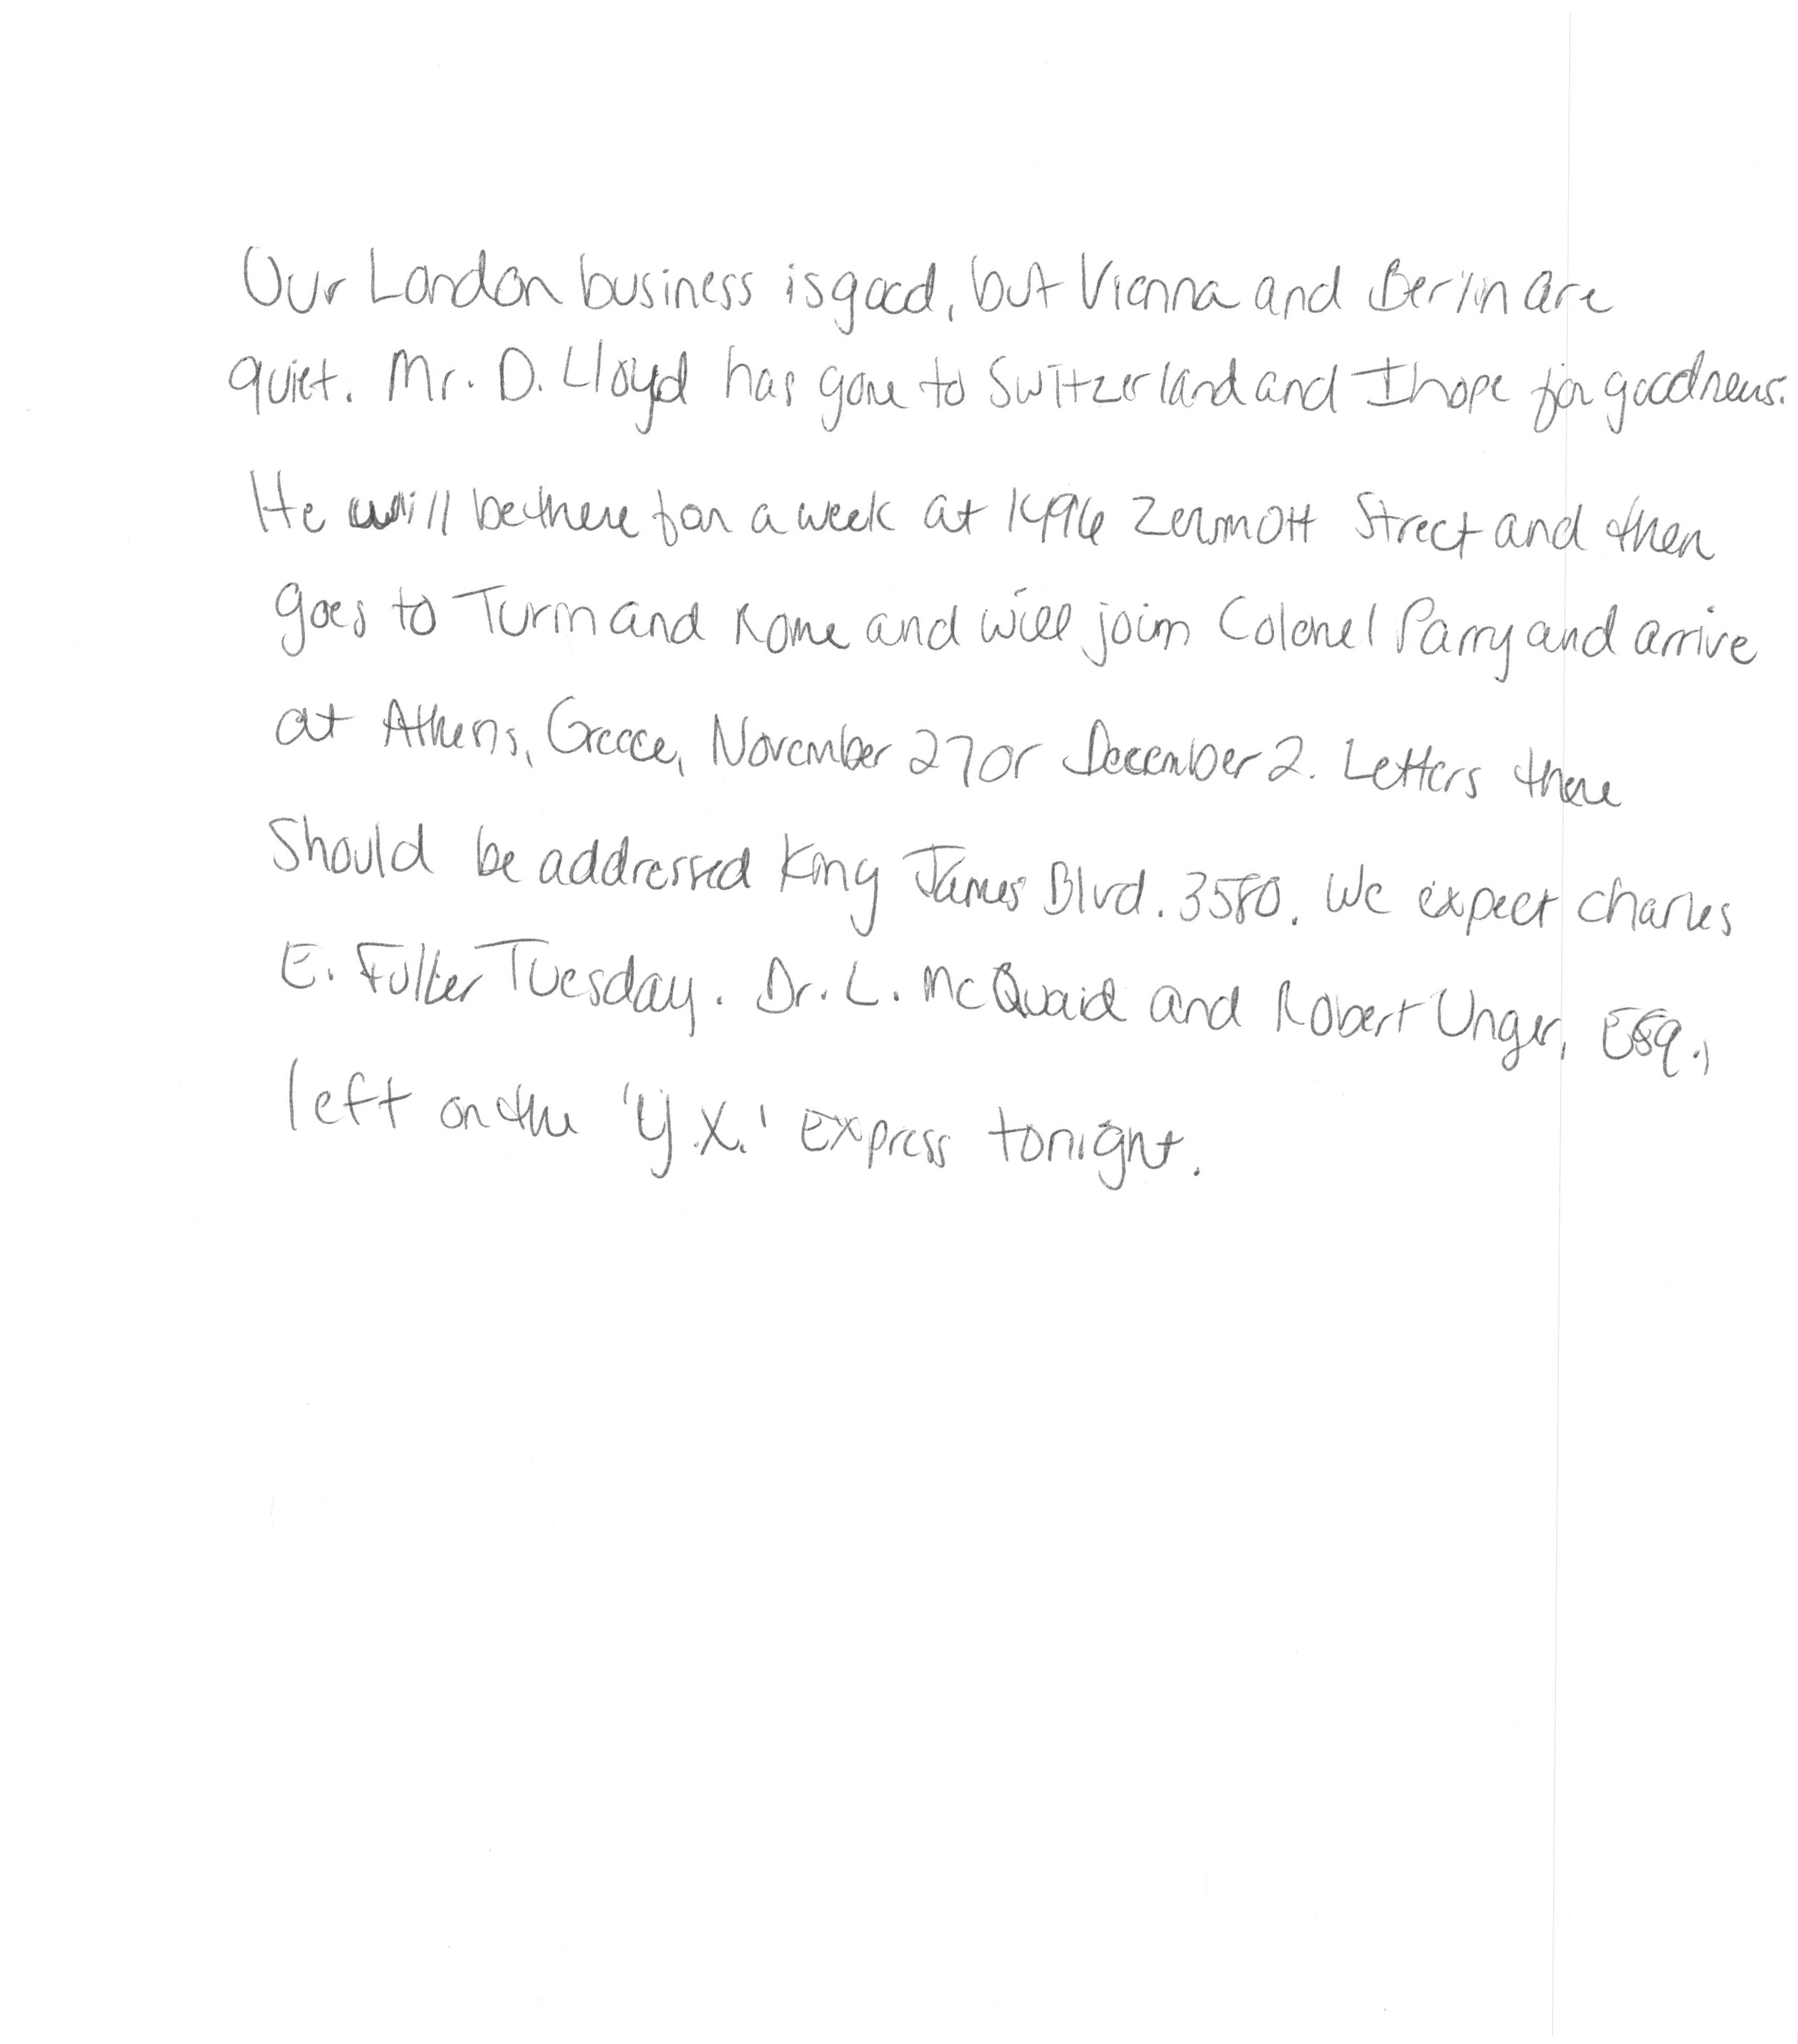 Our London business is good, but Vienna and Berlin are
quiet. Mr. D. Lloyd has gone to Switzerland and I hope for good news.
He will be there for a week at 1496 Zermott Street and then
goes to Turin and Rome and will join Colonel Parry and arrive
at Athens, Greece, November 27 or December 2. Letters there
Should be addressed King James Blvd. 3580. We expect Charles
E. Fuller Tuesday. Dr. L. McQuaid and Robert Unger, Esq.,
left on the 'Y.X.' Express tonight.